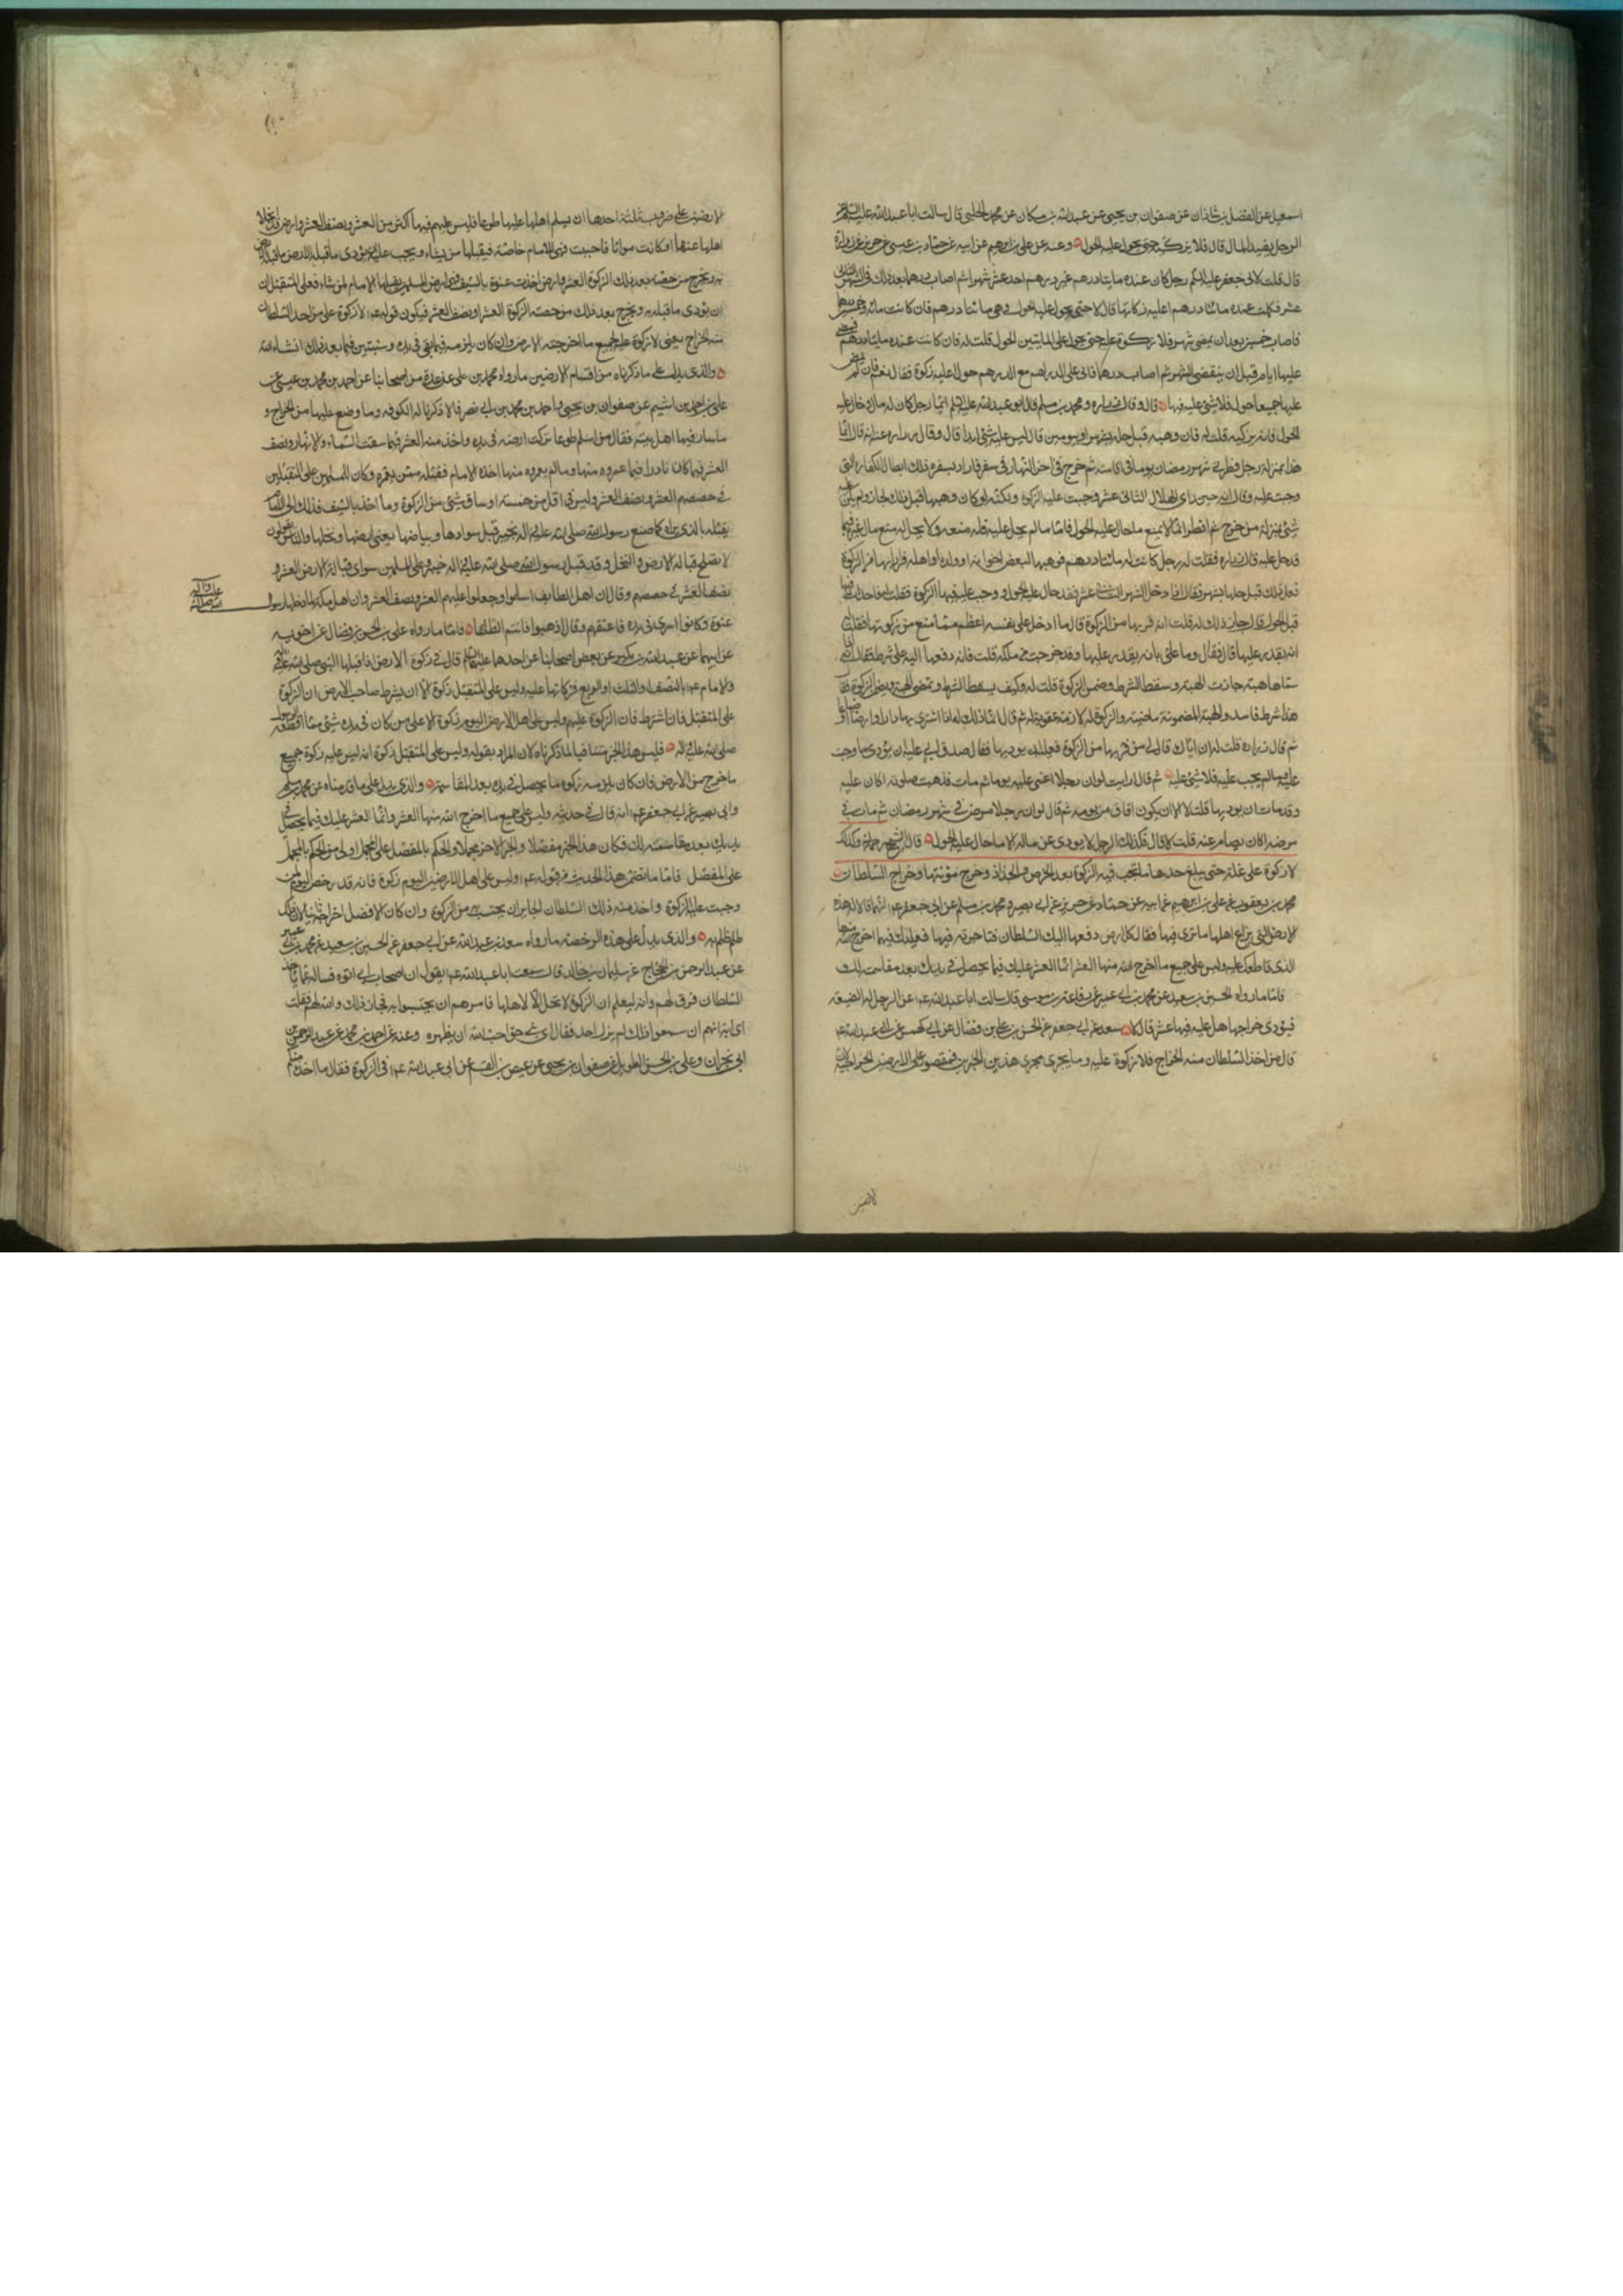 اسمعيل عن الفضل بن شاذان عن صفوان بن يحيى عن عبدالله بن مسكان عن محمد الحلبي قال سالت اباعبدالله عليه السلم عن
الرجل يفيد المال قال فلا يزكيه حتى يحول عليه الحول وعنه عن علي بن ابرهيم عن ابيه عن حماد بن عيسى عن حريز عن زرارة
قال قلت لابي جعفر عليه السلم رجل كان عنده مايتا درهم غير درهم احد عشر شهرا ثم اصاب درهما بعد ذلك في الشهر الثاني
عشر فكملت عنده مائتا درهم اعليه زكاتها قال لا حتى يحول عليه الحول وهي مائتا درهم فان كانت مائة وخمسين درهما
فاصاب خمسين بعد ان يمضي شهر فلا زكوة عليه حتى يحول على المايتين الحول قلت له فان كانت عنده مايتا درهم
عليها ايام قبل ان ينقضي الشهر ثم اصاب درهما فاتى على الدراهم مع الدرهم حول اعليه زكوة فقال نعم فان لم يمض
عليها جميعا الحول فلا شيء عليه فيها قال وقال زراره ومحمد بن مسلم قال ابو عبدالله عليه السلم ايما رجل كان له مال وحال عليه
الحول فانه يزكيه قلت له فان وهبه قبل حله بشهر او بيومين قال ليس عليه شيء ابدا قال وقال زراره عنه انه قال انما
هذا بمنزلة رجل افطر في شهر رمضان يوما في اقامته ثم خرج في اخر النهار في سفر فاراد بسفره ذلك ابطال الكفاره التي
وجبت عليه وقال انه حين راى الهلال الثاني عشر وجبت عليه الزكوة ولكنه لو كان وهبها قبل ذلك لجاز ولم يكن عليه
شيء بمنزلة من خرج ثم افطر انما لا يمنع ما حال عليه الحول فاما ما لم يحل عليه فله منعه ولا يحل له منع مال غيره فيما
قد حل عليه قال زراره فقلت له رجل كانت له مائتا درهم فوهبها لبعض اخوانه او ولده او اهله فرارا بها من الزكوة
فعل ذلك قبل حلها بشهر فقال اذا دخل الشهر الثاني عشر فقد حال عليه الحول ووجب عليه فيها الزكوة فقلت له فان احدث فيها
قبل الحول قال جاز ذلك له قلت انه فر بها من الزكوة قال ما ادخل على نفسه اعظم مما منع من زكوتها فقلت له
انه يقدر عليها قال فقال وما علمه بانه يقدر عليها وقد خرجت من ملكه قلت فانه دفعها اليه على شرط فقال انه اذا
سماها هبة جازت الهبة وسقط الشرط وضمن الزكوة قلت له وكيف يسقط الشرط وتمضي الهبة ويضمن الزكوة فقال
هذا شرط فاسد والهبة المضمونة ماضية والزكوة له لازمة عقوبة له ثم قال انما ذلك له اذا اشترى بها دارا او ارضا او متاعا
ثم قال زراره قلت له ان اباك قال لي من فر بها من الزكوة فعليه ان يوديها فقال صدق ابي عليه ان يؤدي ما وجب
عليه وما لم يجب عليه فلا شيء عليه ثم قال ارايت لو ان رجلا اغمي عليه يوما ثم مات فذهبت صلوته اكان عليه
وقد مات ان يوديها قلت لا الا ان يكون افاق من يومه ثم قال لو ان رجلا مرض في شهر رمضان ثم مات في
مرضه اكان يصام عنه قلت لا قال فكذلك الرجل لا يودي عن ماله الا ما حال عليه الحول قال الشيخ رحمه الله وكذلك
لا زكوة على غلة حتى يبلغ حدها ما تجب فيه الزكوة بعد الخرص والجذاذ وخروج مؤنتها وخراج السلطان
محمد بن يعقوب عن علي بن ابرهيم عن ابيه عن حماد عن حريز عن ابي بصير ومحمد بن مسلم عن ابي جعفر ع انهما قالا له هذه
الارض التي يزارع اهلها ما ترى فيها فقال كل ارض دفعها اليك السلطان فتاجرته فيها فعليك فيما اخرج الله منها
الذي قاطعك عليه وليس على جميع ما اخرج الله منها العشر انما العشر عليك فيما يحصل في يدك بعد مقاسمته لك
فاما ما رواه الحسين بن سعيد عن محمد بن ابي عمير عن رفاعة بن موسى قال سالت اباعبدالله ع عن الرجل له الضيعة
فيؤدي خراجها هل عليه فيها عشر قال لا سعد عن ابي جعفر عن الحسن بن علي بن فضال عن ابي كهمس عن ابي عبدالله ع
قال من اخذ السلطان منه الخراج فلا زكوة عليه وما يجري مجرى هذين الخبرين فمقصور على الارضين الخراجية لان
لارضين
الارضين على ضروب ثلثة احدها ان يسلم اهلها عليها طوعا فليس عليهم فيها اكثر من العشر ونصف العشر وارض قد انجلا
اهلها عنها او كانت مواتا فاحييت فهي للامام خاصة فيقبلها من يشاء ويجب عليه ان يؤدي ما قبله الارض ما قبله
به ويخرج من حصته بعد ذلك الزكوة العشر وارض اخذت عنوة بالسيف فهي ارض المسلمين يقبلها الامام لمن شاء فعلى المتقبل ان
ان يؤدي ما قبله به ويخرج بعد ذلك من حصته الزكوة العشر او نصف العشر فيكون قوله ع لا زكوة على من اخذ السلطان
منه الخراج يعني لا زكوة عليه لجميع ما اخرجته الارض وان كان يلزمه فيما يبقى في يده وسنبين فيما بعد ذلك انشاءالله
والذي يدل على ما ذكرناه من اقسام الارضين ما رواه محمد بن علي عن عدة من اصحابنا عن احمد بن محمد بن عيسى عن
علي بن احمد بن اشيم عن صفوان بن يحيى واحمد بن محمد بن ابي نصر قالا ذكرنا له الكوفه وما وضع عليها من الخراج و
ما سار فيها اهل بيته فقال من اسلم طوعا تركت ارضه في يده واخذ منه العشر فيما سقت السماء والانهار ونصف
العشر فيما كان نادرا فيما عمروه منها وما لم يعمروه منها اخذه الامام فقبله ممن يعمره وكان للمسلمين على المتقبلين
في حصصهم العشر ونصف العشر وليس في اقل من خمسة اوساق شيء من الزكوة وما اخذ بالسيف فذلك الى الامام
يقبله بالذي يراه كما صنع رسول الله صلى الله عليه واله بخيبر قبل سوادها وبياضها يعني ارضها ونخلها والناس يقولون
لا تصلح قبالة الارض والنخل وقد قبل رسول الله صلى الله عليه واله خيبر وعلى المسلمين سوى قبالة الارض العشر و
نصف العشر في حصصهم وقال ان اهل الطايف اسلموا وجعلوا عليهم العشر ونصف العشر وان اهل مكة لما دخلها رسول
الله صلى الله عليه واله
عنوة فكانوا اسرى في يده فاعتقهم وقال اذهبوا فانتم الطلقاء فاما ما رواه علي بن الحسن بن فضال عن اخويه
عن ابيهما عن عبدالله بن بكير عن بعض اصحابنا عن احدهما عليهما السلم قال في زكوة الارض اذا قبلها النبي صلى الله عليه واله
والامام ع بالنصف او الثلث او الربع فزكاتها عليه وليس على المتقبل زكوة الا ان يشترط صاحب الارض ان الزكوة
على المتقبل فان اشترط فان الزكوة عليهم وليس على اهل الارض اليوم زكوة الا على من كان في يده شيء مما اقطعه الرسول
صلى الله عليه واله فليس هذا الخبر منافيا لما ذكرناه لان المراد بقوله وليس على المتقبل زكوة انه ليس عليه زكوة جميع
ما خرج من الارض فان كان يلزمه زكوه ما يحصل في يده بعد المقاسمة والذي يدل على ما قدمناه عن محمد بن مسلم
وابي بصير عن ابي جعفر ع انه قال في حديثه وليس على جميع ما اخرج الله منها العشر وانما العشر عليك فيما يحصل في
يديك بعد مقاسمته لك فكان هذا الخبر مفصلا والخبر الاخر مجملا والحكم بالمفصل على المجمل اولى من الحكم بالمجمل
على المفصل فاما ما تضمن هذا الحديث من قوله ع وليس على اهل الارضين اليوم زكوة فانه قد رخص اليوم لمن
وجبت عليه الزكوة واخذ منه ذلك السلطان الجاير ان يحتسب به من الزكوة وان كان الافضل اخراجه ثانيا لان ذلك
ظلم ظلم به والذي يدل على هذه الرخصة ما رواه سعد بن عبدالله عن ابي جعفر عن الحسين بن سعيد عن محمد بن ابي عمير
عن عبدالرحمن بن الحجاج عن سليمان بن خالد قال سمعت اباعبدالله ع يقول ان اصحاب ابي اتوه فسالوه عما ياخذ
السلطان فرق لهم وانه ليعلم ان الزكوة لا تحل الا لاهلها فامرهم ان يحتسبوا به فجاز ذلك والله لهم فقلت
اي ابة انهم ان سمعوا ذلك لم يزك احد فقال اي بني حق احب الله ان يظهره وعنه عن احمد بن محمد عن عبدالرحمن بن
ابي نجران وعلي بن الحسن الطويل عن صفوان بن يحيى عن عيص بن القسم عن ابي عبدالله ع في الزكوة فقال ما اخذه منكم